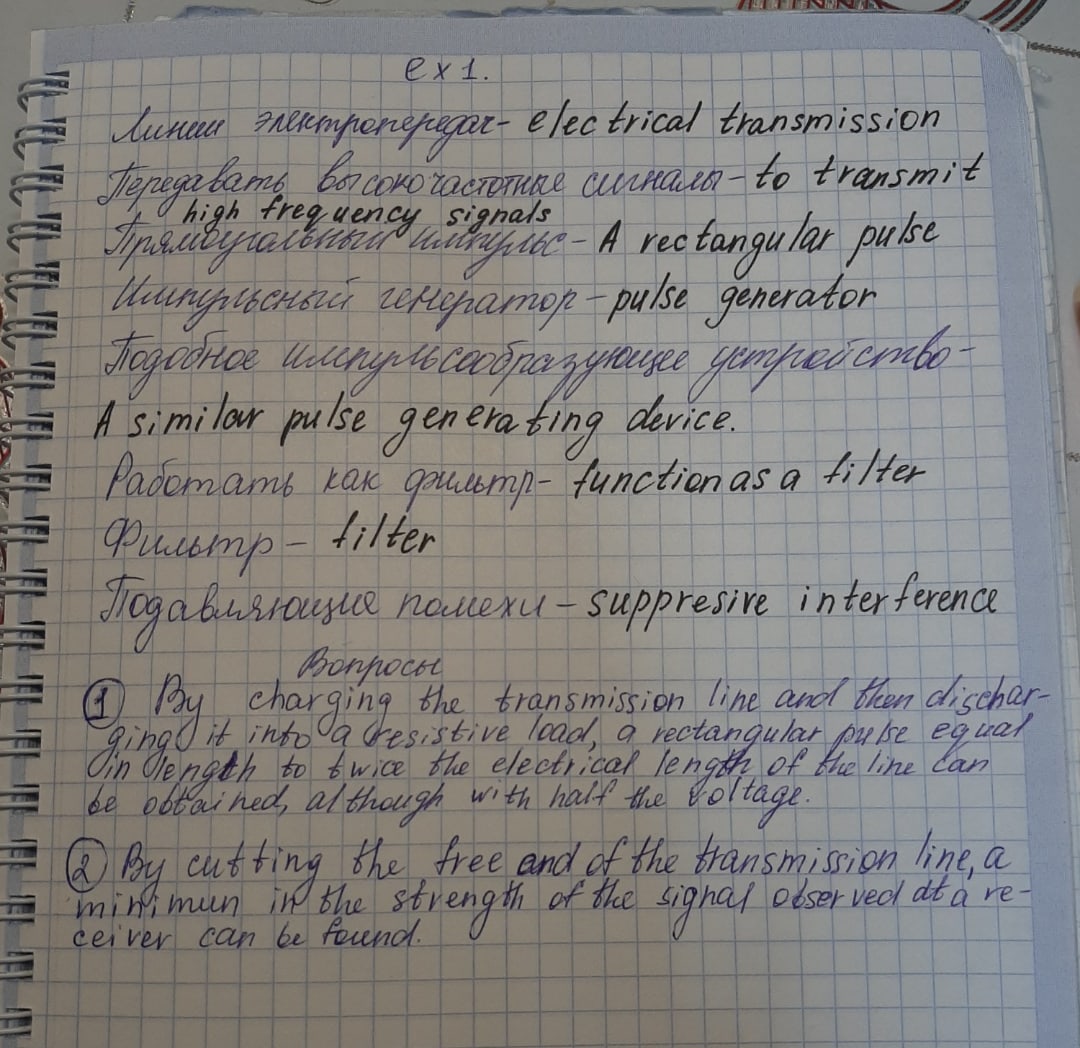 ex1.
Линии электропередач- electrical transmission
Передавать высокочастотные сигналы- to transmit
high frequency signals
Прямоугольный импульс - A rectangular pulse
Импульсный генератор - pulse generator
Подобное импульсообразующее устройство-
A similar pulse generating device.
Работать как фильтр- function as a filter
Фильтр - filter
Подавляющие помехи - suppresive interference
Вопросы
① By charging the transmission line and then dischar-
ging it into a resistive load, a rectangular pulse equal
in length to twice the electrical length of the line can
be obtained, although with half the voltage.
② By cutting the free and of the transmission line, a
minimun in the strength of the signal observed at a re-
ceiver can be found.